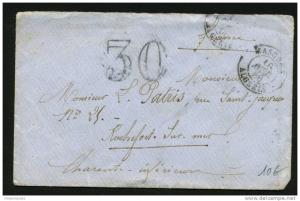 30
Monsieur
Monsieur L. Patris, rue Saint-Jacques
N° 25
Rochefort-Sur-mer
Charente inférieure
106